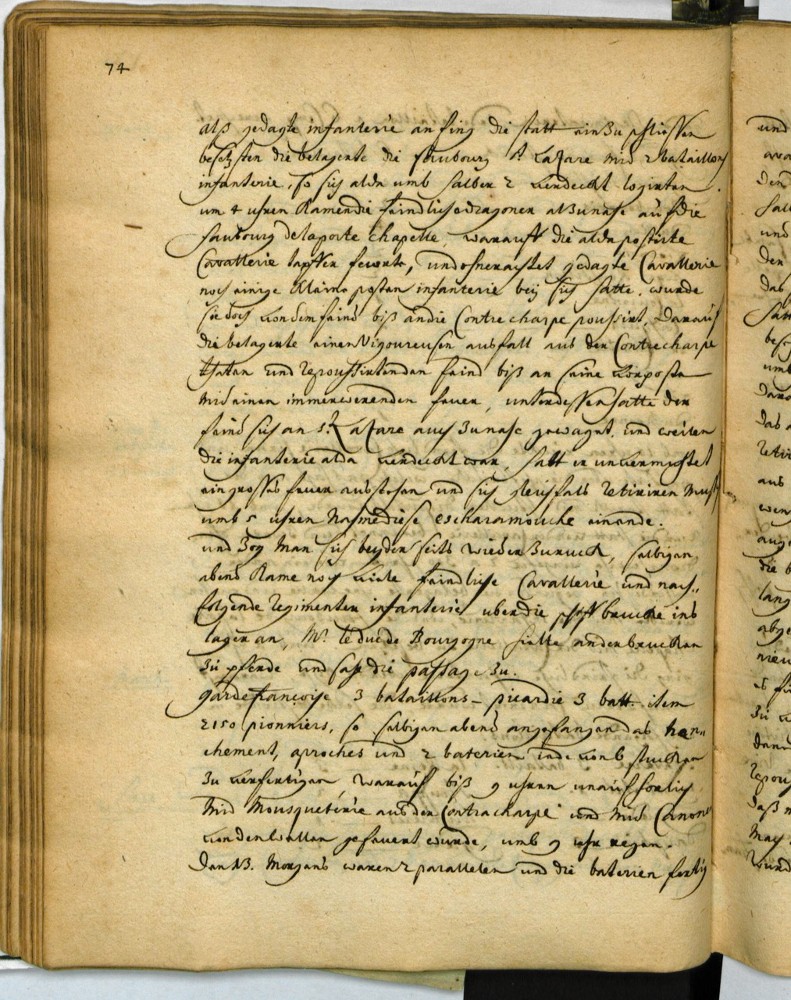 74
alß gedagte infanterie anfing die statt ein Zu schliessen
besetzten die belagerte die faubourg St Lazare mid 2 bataillons
infanterie, so sich alda umb selber 2 verdeckt logirten.
um 4 uhren kamen die feindliche dragoner alZunahe auf die
faubourg de la porte Chapelle, warauff die alda postirte
Cavallerie tapffer feurte, und ohneracht gedagte Cavallerie
noch einige kleine posten infanterie bey sich hatte, wurde
sie doch von dem feind biß an die Contrecharpe poussirt. Darauf
die belagerte einen Vigoureusen ausfall aus der Contrecharpe
thaten und repoussirten den feind biß an seine vorposten
mid einen immerwerenden feuer, unterdessen hatte der
feind sich an St Lazare auch Zunahe gewagt, und weilen
die infanterie alda verdeckt war, hatt er unvermuhtet
ein grosses feuer ausstehen und sich gleichfals retiriren must
umb 5 uhren nahm diese escharamouche ein ende.
und Zog man sich beyder seits wieder Zuruck, selbigen
abend kame noch viele feindliche Cavallerie und nach-
folgende regimenter infanterie uber die schiff brucke ins
lager an, Mr. le duc de Bourgogne hielte an der brucken
Zu pferde und sahe die passage Zu.
garde françoise 3 bataillons - picardie 3 batt. item
2150 pionniers, so selbigen abend angefangen das tran-
chement, aproches und 2 baterien jede von 6 stucken
Zu verfertigen warauf biß 9 uhren unaufhorlich
mid Mousqueterie aus der Contracharpe und mit Canons
von den wallen gefeuert wurde, umb 9 uhr regen.
Den 13. Morgens waren 2 parallelen und die baterien fertig